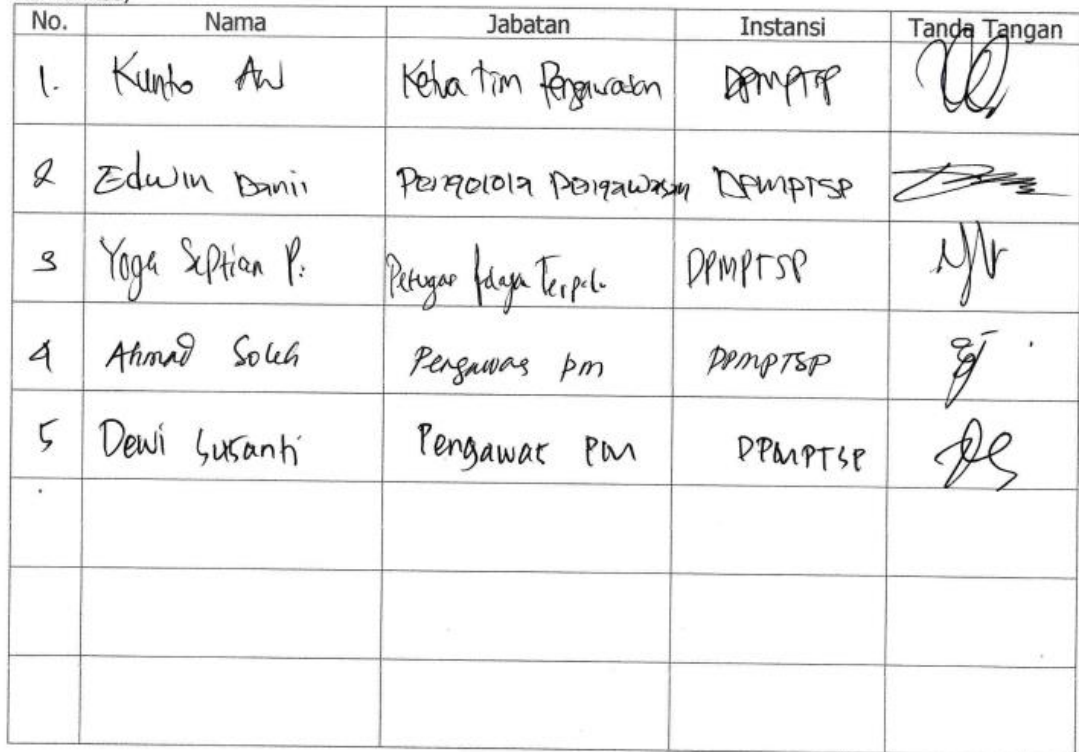 No. Nama Jabatan Instansi Tanda Tangan
1. Kunto AW Ketua Tim Pengawasan DPMPTSP
2 Edwin Danii Pengelola Pengawasan DPMPTSP
3 Yoga Septian P. Petugas Terpal. DPMPTSP
4 Ahmad Soleh Pengawas pm DPMPTSP
5 Dewi Susanti Pengawas PM DPMPTSP